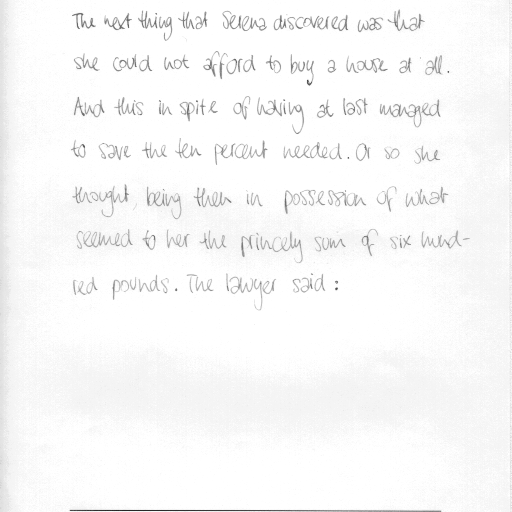 The next thing that Serena discovered was that
she could not afford to buy a house at all.
And this in spite of having at last managed
to save the ten percent needed. Or so she
thought, being then in possession of what
seemed to her the princely sum of six hund-
red pounds. The lawyer said :